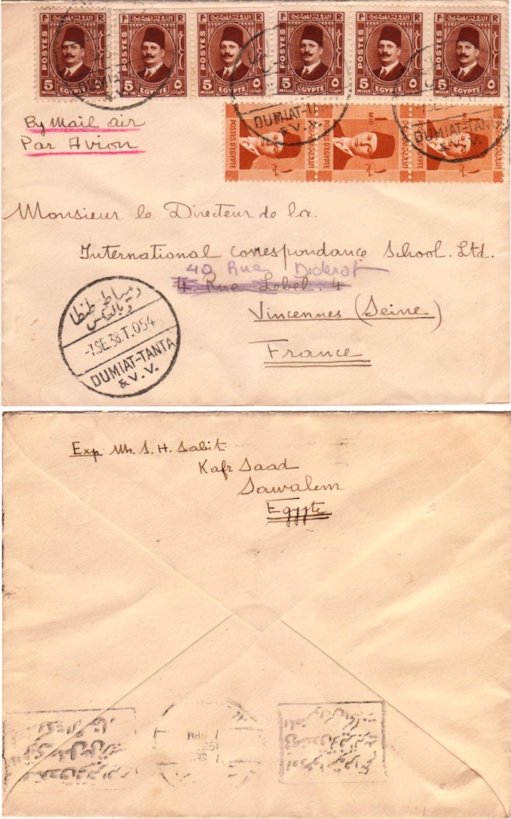 POSTES POSTES POSTES POSTES POSTES POSTES
5 EGYPTE ٥ 5 EGYPTE ٥ 5 EGYPTE ٥ 5 EGYPTE ٥ 5 EGYPTE ٥ 5 EGYPTE ٥
By Mail air
Par Avion
DUMIAT-T
& V.V.
DUMIAT-TANTA
& V.V.
POSTES D'EGYPTE POSTES D'EGYPTE POSTES D'EGYPTE
Monsieur le Directeur de la
International Correspondance School. Ltd.
40 Rue Diderot
4 Rue Lebel 4
Vincennes (Seine)
France
دمياط طنطا
وبالعكس
-7.SE.38.T.054
DUMIAT-TANTA
& V.V.
Exp Mr. S. H. Sabit
Kafr Saad
Sawalem
Egypte